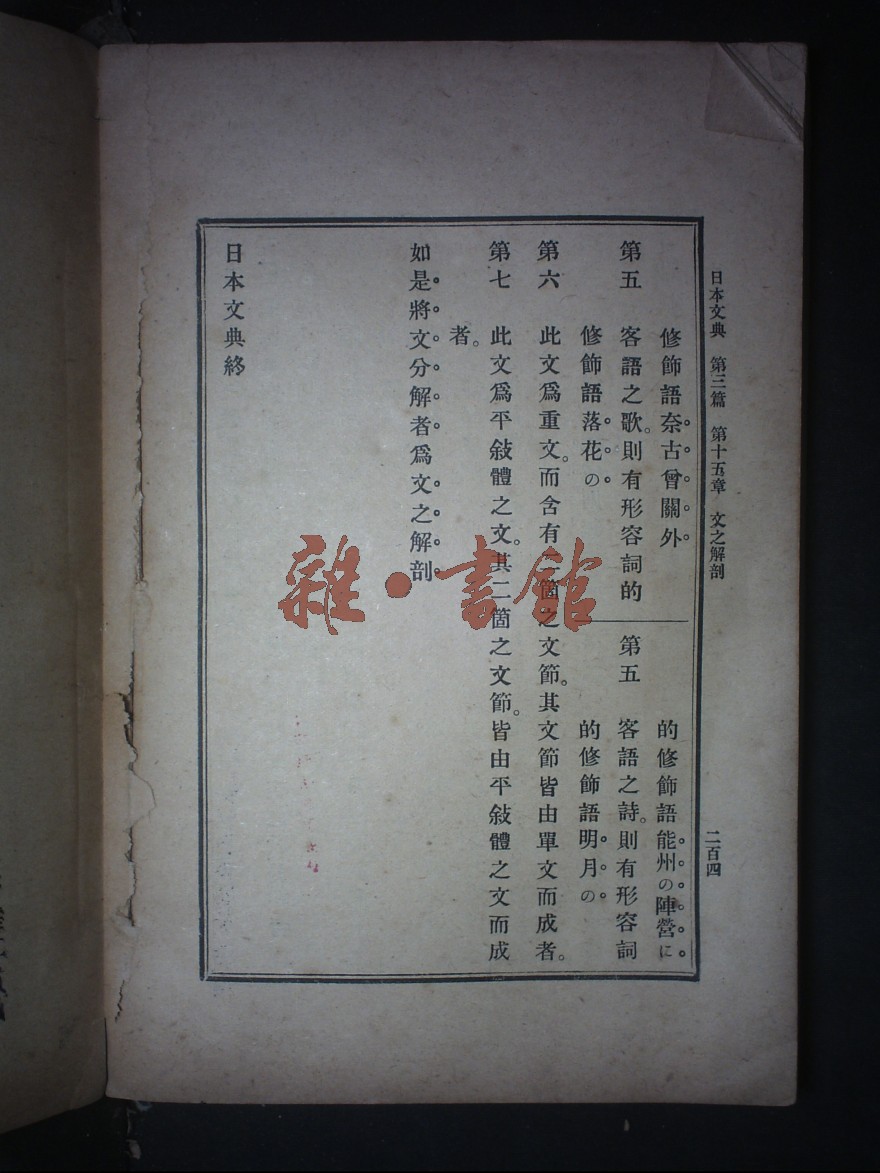 日本文典 第三篇 第十五章 文之解剖 二百四
修飾語奈古曾關外
第五 客語之歌。則有形容詞的
修飾語落花の
的修飾語能州の陣營に
第五 客語之詩。則有形容詞
的修飾語明月の
第六 此文爲重文。而含有二箇之文節。其文節皆由單文而成者。
第七 此文爲平敍體之文。其二箇之文節。皆由平敍體之文而成
者。
如是將文分解者爲文之解剖
日本文典終
雜·書館